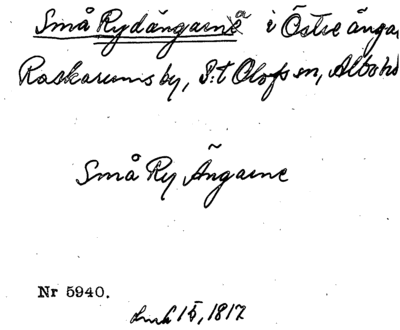 Små Rydängarna i Östre änga
Raskarums by, S:t Olofs sn, Albo h
Små Ry Ängarne
Nr 5940.
15, 1817